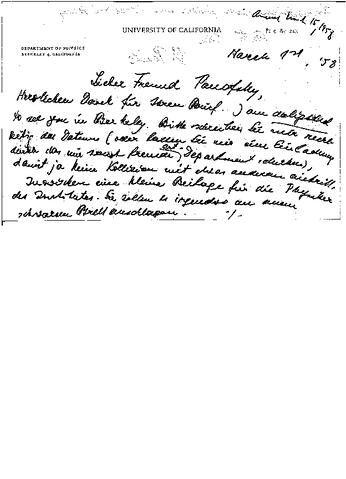 March 15, 1958
UNIVERSITY OF CALIFORNIA
DEPARTMENT OF PHYSICS
BERKELEY 4, CALIFORNIA
March 1st, '58
Lieber Freund Panofsky,
Herzlichen Dank für Ihren Brief. I am delighted
to see you in Berkeley. Bitte schreiben Sie mir recht-
zeitig das Datum (oder lassen Sie mir eine Einladung
durch das mir sonst fremde art-Department schicken),
damit ja keine Kollision mit etwas anderem eintritt.
Inzwischen eine kleine Beilage für die Physiker
des Institutes. Sie sollen es irgendwo an einem
schwarzen Brett anschlagen. ./.